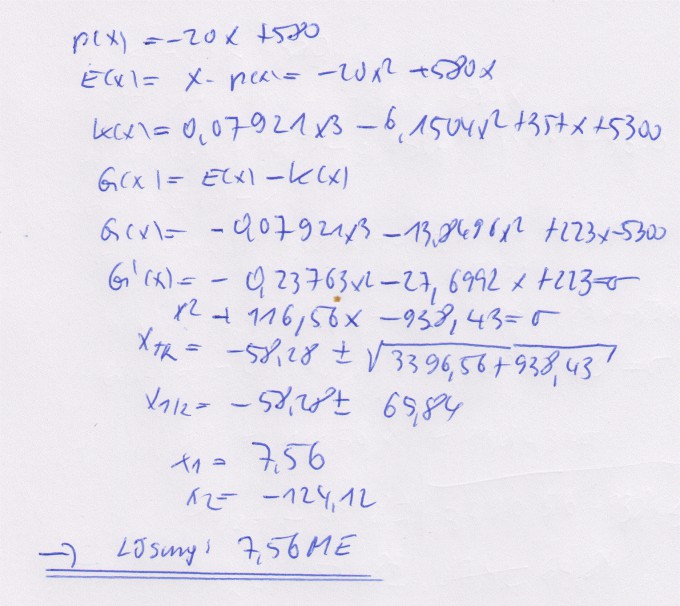 p(x) = -20x + 580
E(x) = x · p(x) = -20x² + 580x
K(x) = 0,07921x3 - 6,1504x² + 357x + 5300
G(x) = E(x) - K(x)
G(x) = - 0,07921x3 - 13,8496x² + 223x - 5300
G'(x) = - 0,23763x² - 27,6992x + 223 = 0
x² + 116,56x - 938,43 = 0
x1/2 = -58,28 ± √3396,56 + 938,43
x1/2 = -58,28 ± 65,84
x1 = 7,56
x2 = -124,12
→ Lösung: 7,56 ME